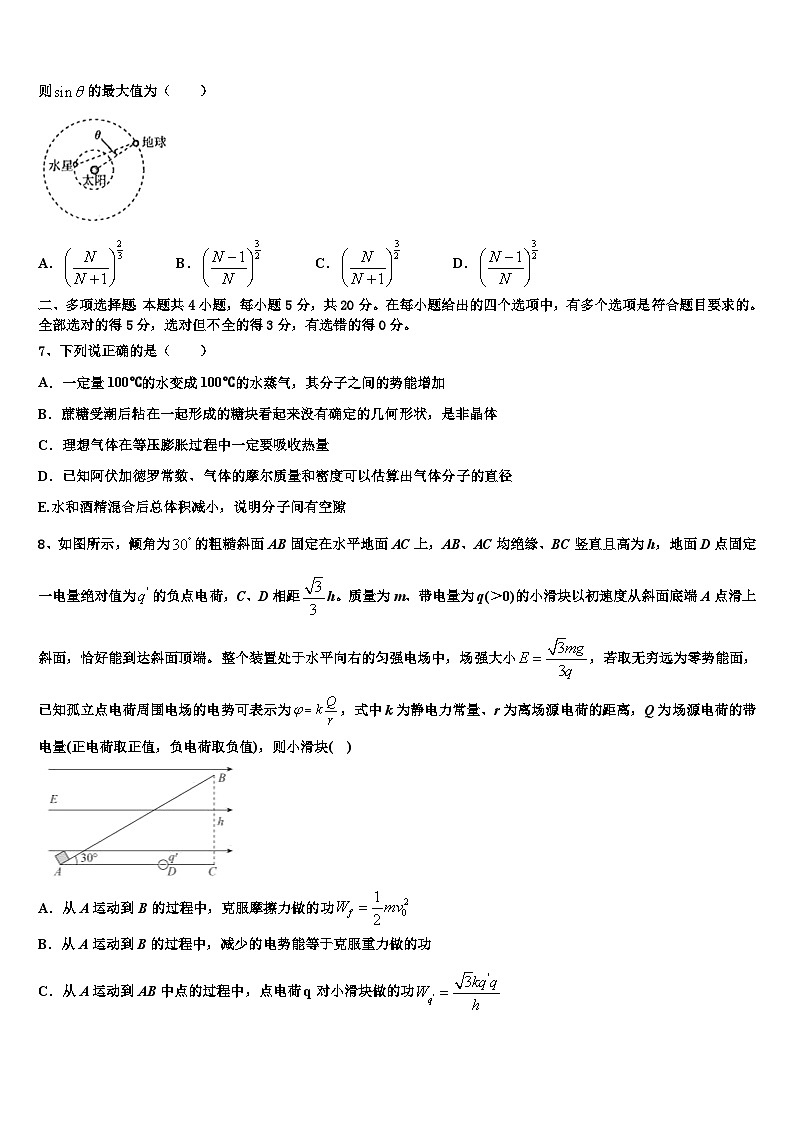 则sinθ的最大值为（　　）
θ
地球
水星
太阳
A．(N/(N+1))^(2/3)　B．((N−1)/N)^(3/2)　C．(N/(N+1))^(3/2)　D．((N−1)/N)^(3/2)
二、多项选择题：本题共4小题，每小题5分，共20分。在每小题给出的四个选项中，有多个选项是符合题目要求的。
全部选对的得5分，选对但不全的得3分，有选错的得0分。
7、下列说正确的是（　　）
A．一定量100℃的水变成100℃的水蒸气，其分子之间的势能增加
B．蔗糖受潮后粘在一起形成的糖块看起来没有确定的几何形状，是非晶体
C．理想气体在等压膨胀过程中一定要吸收热量
D．已知阿伏加德罗常数、气体的摩尔质量和密度可以估算出气体分子的直径
E.水和酒精混合后总体积减小，说明分子间有空隙
8、如图所示，倾角为30°的粗糙斜面AB固定在水平地面AC上，AB、AC均绝缘、BC竖直且高为h，地面D点固定
一电量绝对值为q'的负点电荷，C、D相距√3/3 h。质量为m、带电量为q(＞0)的小滑块以初速度从斜面底端A点滑上
斜面，恰好能到达斜面顶端。整个装置处于水平向右的匀强电场中，场强大小E=√3mg/3q，若取无穷远为零势能面，
已知孤立点电荷周围电场的电势可表示为φ=kQ/r，式中k为静电力常量、r为离场源电荷的距离，Q为场源电荷的带
电量(正电荷取正值，负电荷取负值)，则小滑块(　)
B
E
h
30°
q'
A
D
C
A．从A运动到B的过程中，克服摩擦力做的功W_f=1/2 mv₀²
B．从A运动到B的过程中，减少的电势能等于克服重力做的功
C．从A运动到AB中点的过程中，点电荷q 对小滑块做的功W_q'=√3kq'q/h